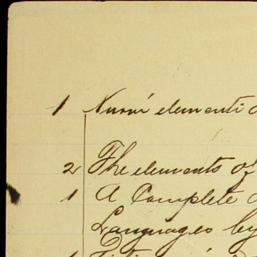 1 Nuovi elementi
2 The elements of
1 A Complete
Languages by
1